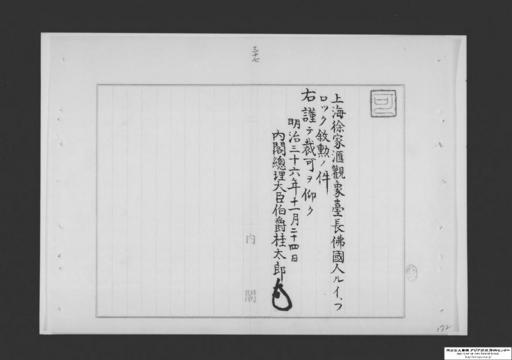 可
上海徐家滙觀象臺長佛國人ルイ、フ
ロック敘勲ノ件
右謹テ裁可ヲ仰ク
明治三十六年十一月二十四日
內閣總理大臣伯爵桂太郎
內閣